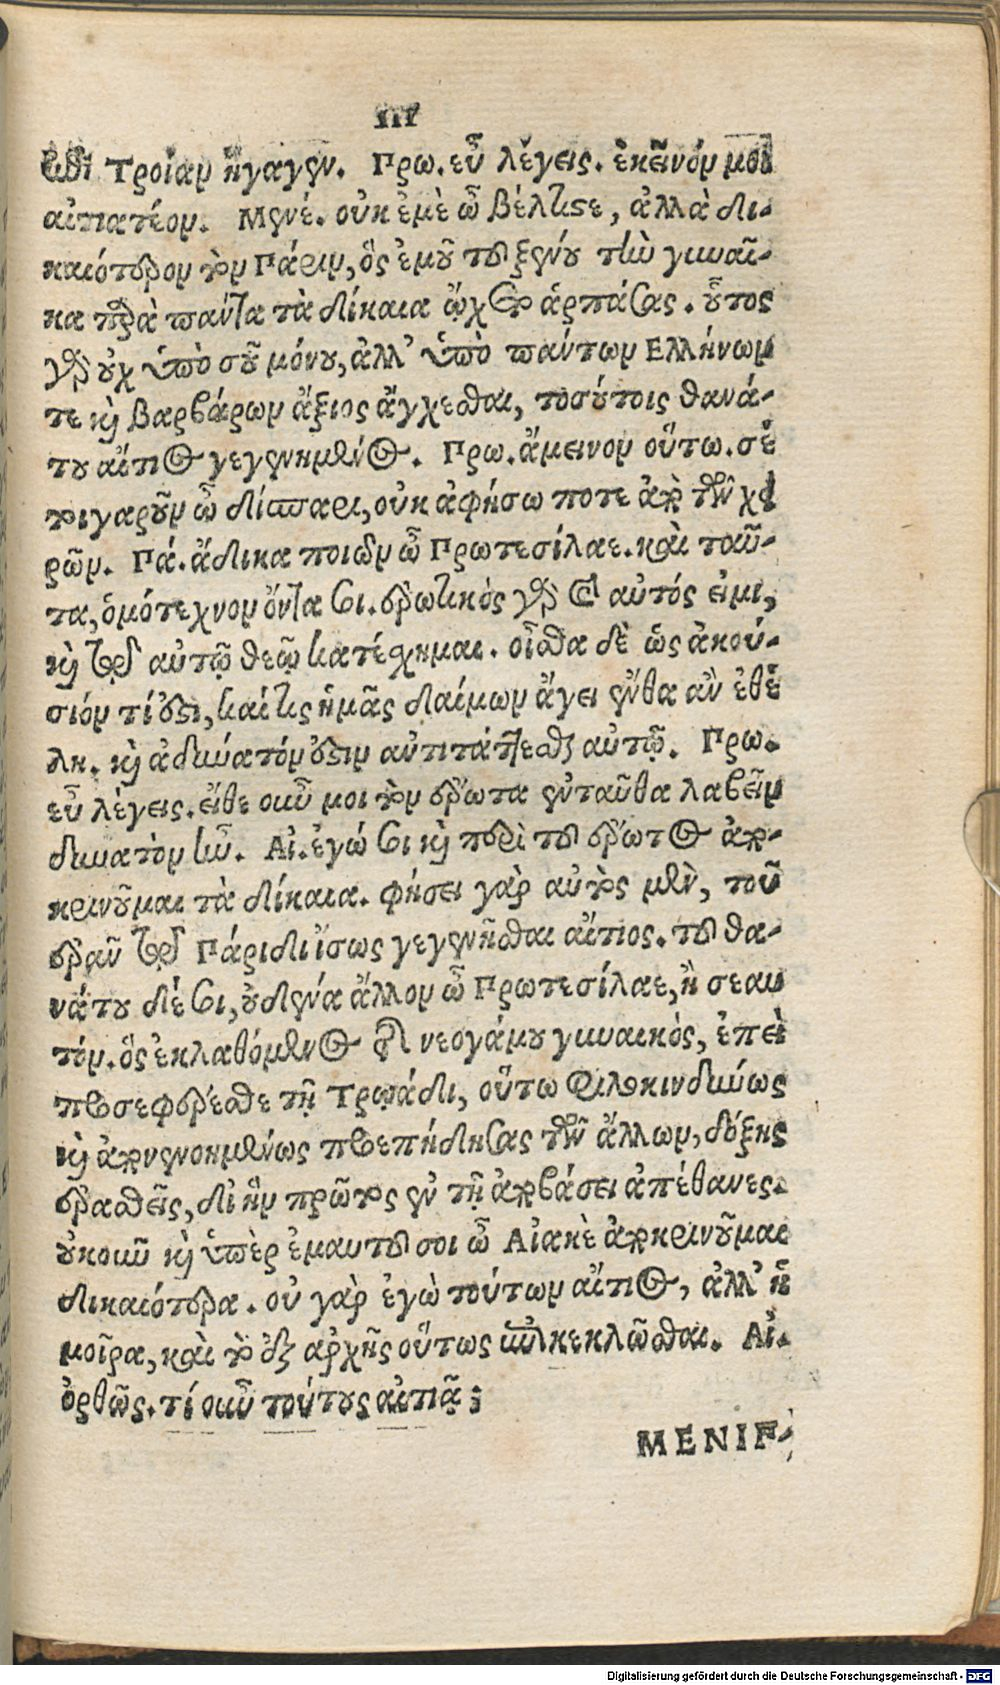 III
ἐπὶ Τροίαν ἤγαγεν. Πρω. εὖ λέγεις. ἐκεῖνόν μοι
αἰτιατέον. Μενέ. οὐκ ἐμὲ ὦ βέλτιστε, ἀλλὰ δι-
καιότερον τὸν Πάριν, ὃς ἐμοῦ τοῦ ξένου τὴν γυναῖ-
κα παρὰ πάντα τὰ δίκαια ᾤχετο ἁρπάσας. οὗτος
γὰρ οὐχ ὑπὸ σοῦ μόνου, ἀλλ' ὑπὸ πάντων Ελλήνων
τε καὶ βαρβάρων ἄξιος ἄγχεσθαι, τοσούτοις θανά-
του αἴτιος γεγενημένος. Πρω. ἄμεινον οὕτω. σὲ
τοιγαροῦν ὦ δύσπαρι, οὐκ ἀφήσω ποτε ἀπὸ τῶν χε
ρῶν. Πά. ἄδικα ποιῶν ὦ Πρωτεσίλαε. καὶ ταῦ-
τα, ὁμότεχνον ὄντα σοι. ἐρωτικὸς γὰρ καὶ αὐτός εἰμι,
καὶ τῷ αὐτῷ θεῷ κατέσχημαι. οἶσθα δὲ ὡς ἀκού-
σιόν τί ἐστι, καί τις ἡμᾶς δαίμων ἄγει ἔνθα ἂν ἐθέ
λη. καὶ ἀδύνατόν ἐστιν ἀντιτάττεσθαι αὐτῷ. Πρω.
εὖ λέγεις. εἴθε οὖν μοι τὸν ἔρωτα ἐνταῦθα λαβεῖν
δυνατὸν ἦν. Αἰ. ἐγώ σοι καὶ περὶ τοῦ ἔρωτος ἀπο-
κρινοῦμαι τὰ δίκαια. φήσει γὰρ αὐτὸς μὲν, τοῦ
ἐρᾶν τῷ Πάριδι ἴσως γεγενῆσθαι αἴτιος. τοῦ θα-
νάτου δέ σοι, οὐδένα ἄλλον ὦ Πρωτεσίλαε, ἢ σεαυ
τόν. ὃς ἐκλαθόμενος τῆς νεογάμου γυναικὸς, ἐπεὶ
προσεφέρεσθε τῇ Τρῳάδι, οὕτω φιλοκινδύνως
καὶ ἀπονενοημένως προεπήδησας τῶν ἄλλων, δόξης
ἐρασθεὶς, δι' ἣν πρῶτος ἐν τῇ ἀποβάσει ἀπέθανες.
Πρω. οὐκοῦν καὶ ὑπὲρ ἐμαυτοῦ σοι ὦ Αἰακὲ ἀποκρινοῦμαι
δικαιότερα. οὐ γὰρ ἐγὼ τούτων αἴτιος, ἀλλ' ἡ
μοῖρα, καὶ τὸ ἐξ ἀρχῆς οὕτως ἐπικεκλῶσθαι. Αἰ.
ὀρθῶς. τί οὖν τούτους αἰτιᾷ;
MENIP-
Digitalisierung gefördert durch die Deutsche Forschungsgemeinschaft - DFG